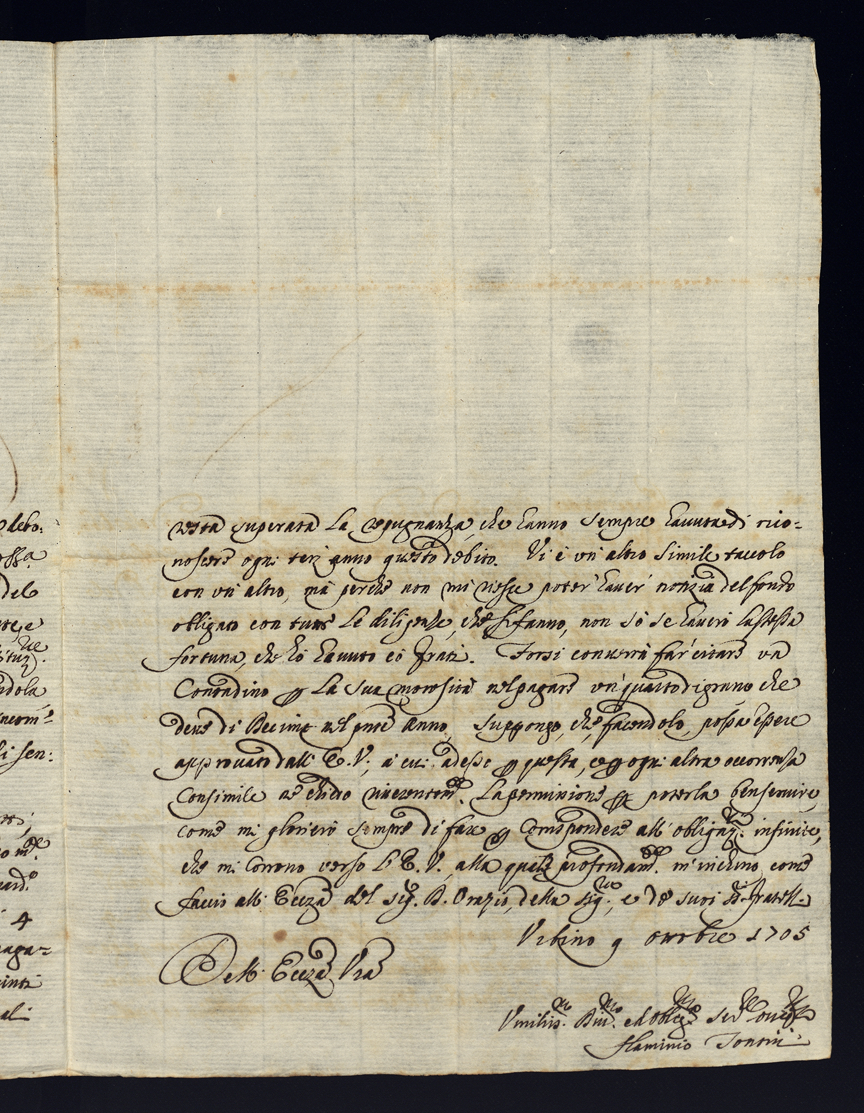 resta superata la repugnanza, che hanno sempre hauuta di rico=
noscere ogni terz' anno questo debito. Vi è un' altro simile taccolo
con un' altro, mà perche non mi riesce poter' hauer' notizia del fondo
obligato con tutte le diligenze, che si fanno, non sò se hauerò la stessa
fortuna, che hò hauuto coi frati. Forsi conuerrà far' citare un
Contadino p la sua morosità nel pagare un' quarto di grano che
deue di Decime nel pnte Anno, suppongo, che facendolo, possa essere
approuato dall' E. V., à cui adesso p questa, e p ogni altra occorrenza
consimile ne chiedo riuerentem.te la permissione p poterla ben seruire,
come mi glorierò sempre di fare p corrispondere all' obligaz.ni infinite,
che mi corrono verso l' E. V., alla quale profondam.te m' inchino, come
faccio all' Ecc.za del sig. D. Orazio, della sig.ra, e de suoi SS.ri fratelli.
Vrbino 9 ottobre 1705
Dell' Ecc.za Vra
Vmiliss.mo Diu.mo ed Oblig.mo Ser.re ouer
Flaminio
debo:
del
ndola,
li sen:
4
paga=
uinti
al